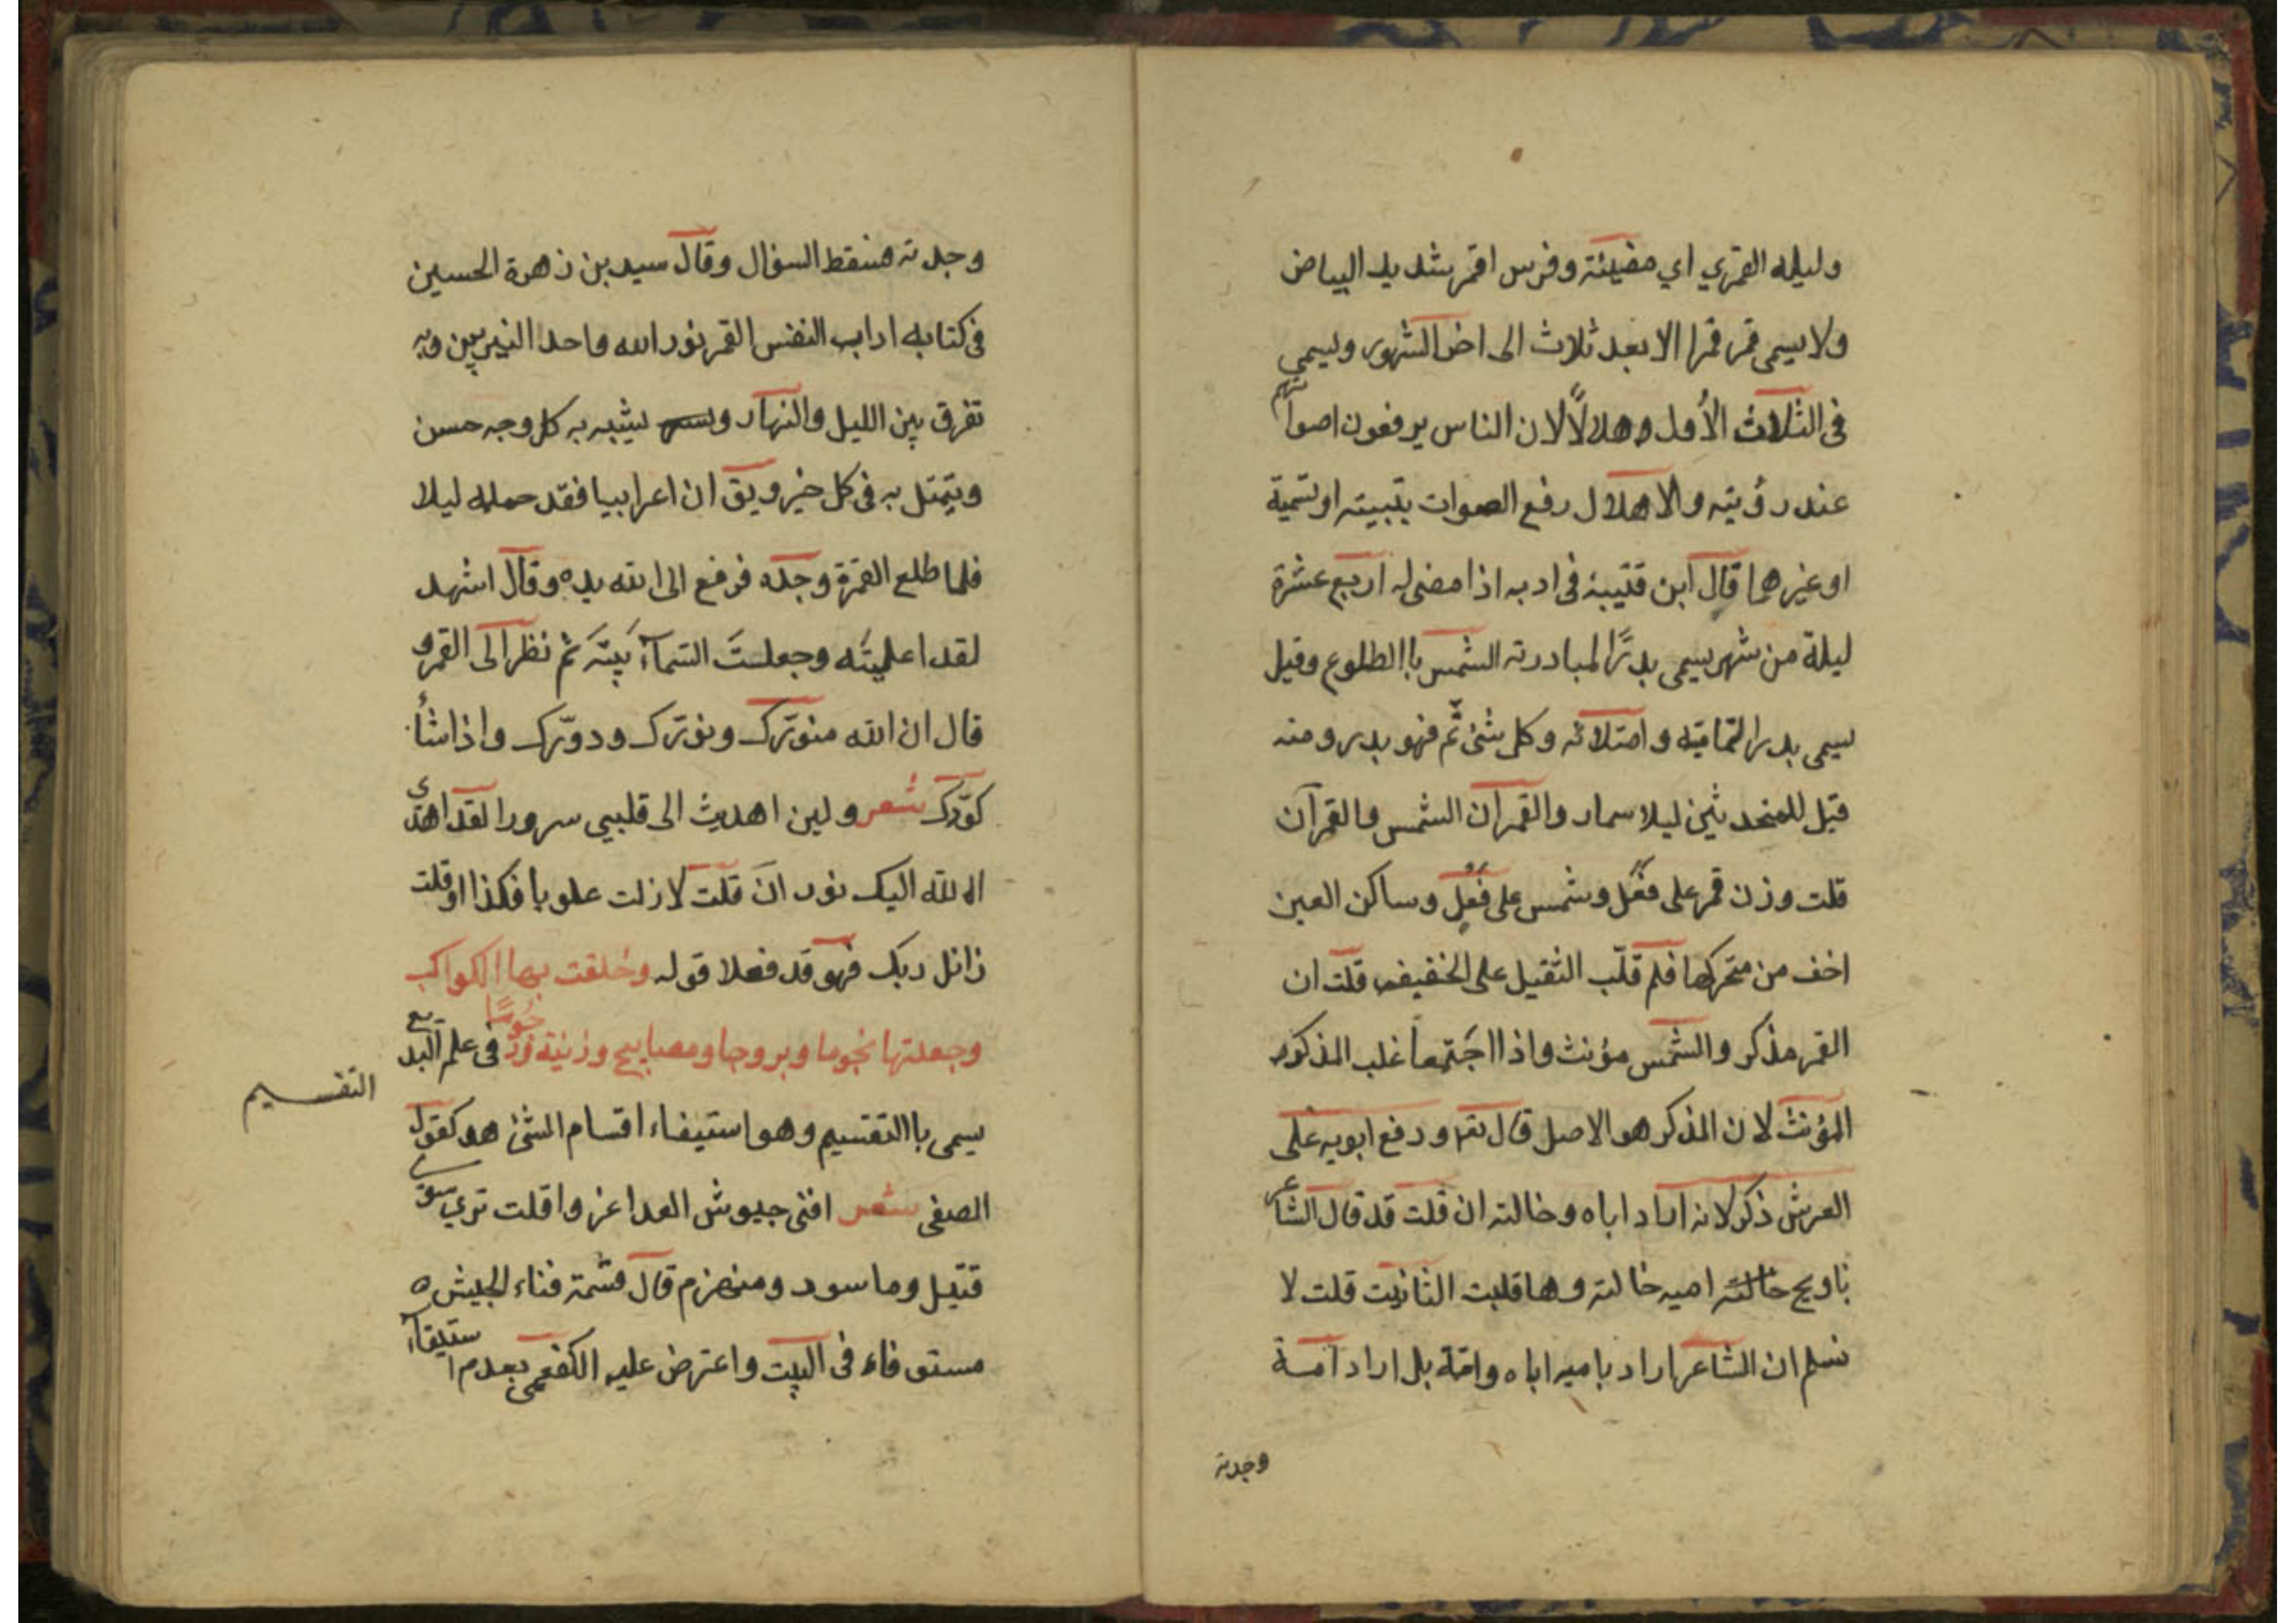 وليله القمري اي مضيئة وفرس اقمر شديد البياض
ولا يسمى قمر قمرا الا بعد ثلاث الى اخر الشهور ويسمي
فى الثلاث الأول وهلالًا لان الناس يرفعون اصواتهم
عند رؤيته والاهلال رفع الصوات بتبيته او تسمية
او غيرهما قال ابن قتيبة فى ادبه اذا مضى له اربع عشرة
ليلة من شهر يسمى بدرًا لمبادرته الشمس باالطلوع وقيل
سيمى بدرا لتماميّه وامتلائه وكل شئ تمّ فهو بدر ومنه
قيل للمتحدثين ليلا سمار والقمران الشمس والقمر آن
قلت وزن قمر على فعل وشمس على فعل وساكن العين
اخف من متحركها فلم قلّب الثقيل على الخفيف قلت ان
القمر مذكر والشمس مؤنث واذا اجتمعا غلب المذكور
المؤنث لان المذكر هو الاصل قال تعم ورفع ابويه على
العرش ذكر لانه اراد اباه وخالته ان قلت قد قال الشاعر
خالته اميه خالته وها قلبت الثانيت قلت لا
نسلم ان الشاعر اراد باميه اباه وامّه بل اراد امسة
وجدته
وجدته فسقط السؤال وقال سيد بن زهرة الحسين
فى كتابه اداب النفس القمر نور الله واحد النيريين وبه
تفرق بين الليل والنهار يشبه به كل وجه حسن
ويتمثل به فى كل خير ويق ان اعرابييا فقد جمله ليلا
فلما طلع القمرة وجده فرفع الى الله يده وقال اشهد
لقد اعليته وجعلت السمآء بيته ثم نظر الى القمر و
قال ان الله منوّرك ونوّرك ودوّرك واذا شأ
كوّرك شعر ولين اهديت الى قلبيى سرورا لقد اهدى
اله لله اليك نور ان قلت لا زلت علويا فكذا او قلت
زانل ربك فهو قد فعلا قوله وخلقت بها الكواكب
وجعلتها نجوما وبروجا ومصابيح وزنية ورجُومًا فى علم البديع
التقسيم
سيمى باالتقسيم وهو استيفاء اقسام الشئ هد كقول
الصفى شعر افنى جيوش العدا غزوا قلت تري سوى
قتيل وماسور ومنهزم قال قسّمة فناء الجيش ه
مستوفاء فى البيت واعترض عليه الكفعمى بعدم استيفآء